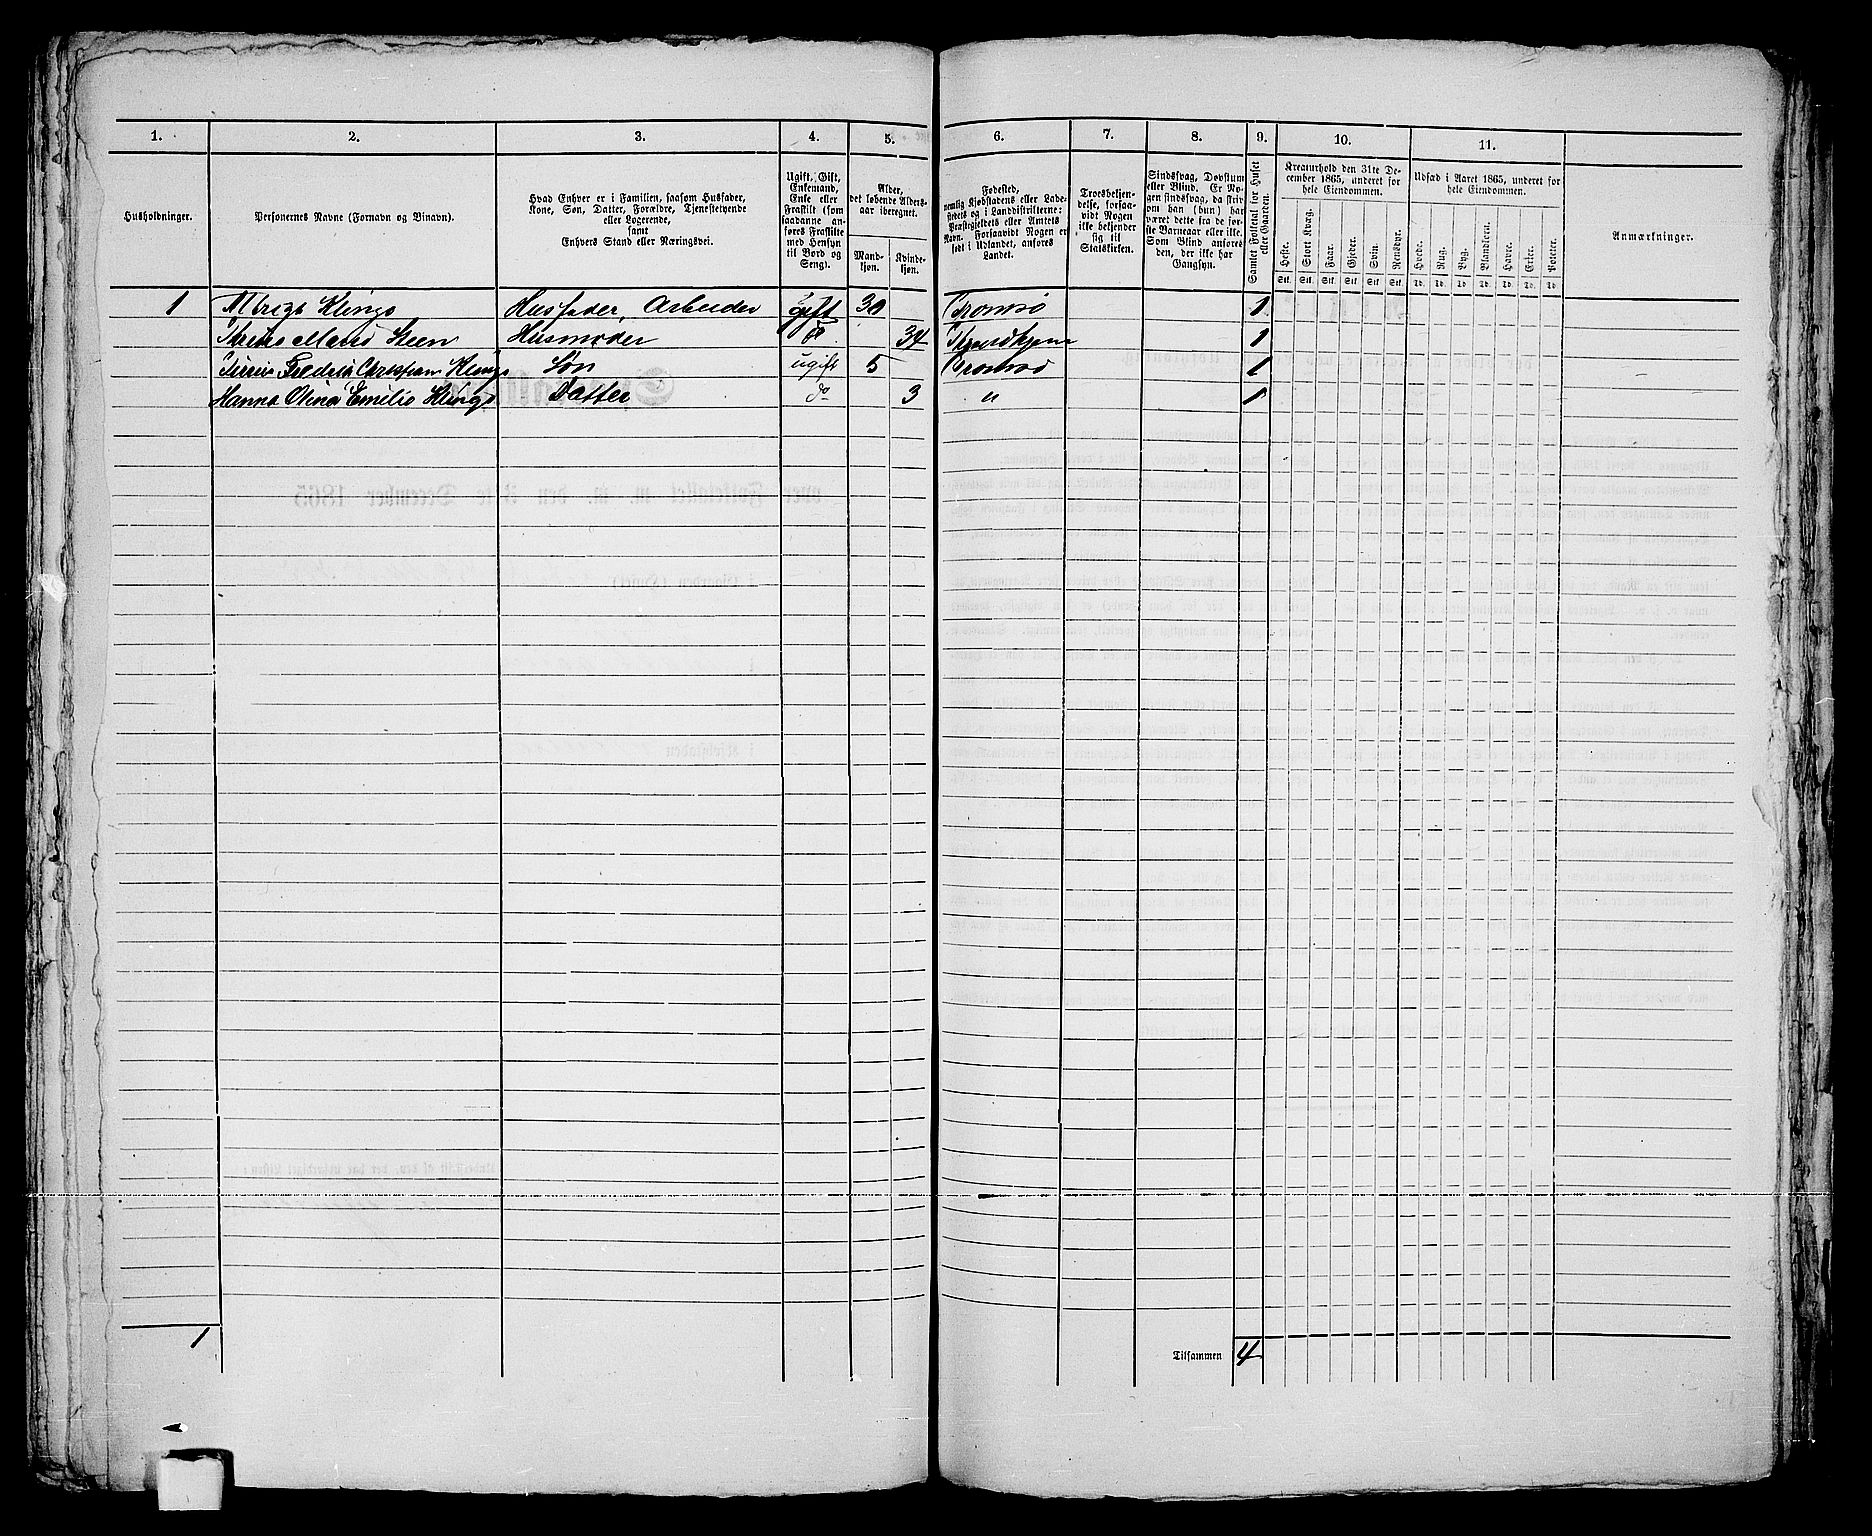 1. 2. 3. 4. 5. 6. 7. 8. 9. 10. 11.
Husholdninger.
Personernes Navne (Fornavn og Binavn).
Hvad Enhver er i Familien, saasom Husfader,
Kone, Søn, Datter, Forældre, Tjenestetyende
eller Logerende,
samt
Enhvers Stand eller Næringsvei.
Ugift, Gift,
Enkemand,
Enke eller
Fraskilt (som
saadanne an-
føres Fraskilte
med Hensyn
til Bord og
Seng).
Alder,
det løbende Alders-
aar iberegnet.
Mand-
kjøn.
Kvinde-
kjøn.
Fødested,
nemlig Kjøbstadens eller Lade-
stedets og i Landdistrikterne:
Præstegjeldets eller Amtets
Navn. Forsaavidt Nogen er
født i Udlandet, anføres
Landet.
Troesbekjen-
delse, forsaa-
vidt Nogen
ikke bekjender
sig til
Statskirken.
Sindssvag, Døvstum
eller Blind. Er No-
gen sindssvag, da skriv
om han (hun) har
været dette fra de før-
ste Barneaar eller ikke.
Som Blind anføres
den, der ikke har
Gangsyn.
Samlet Folketal for Huset
eller Gaarden.
Kreaturhold den 31te De-
cember 1865, underet for
hele Eiendommen.
Heste. Stort Kvæg. Faar. Gjeder. Svin. Rensdyr.
Stk. Stk. Stk. Stk. Stk. Stk.
Udsæd i Aaret 1865, underet for
hele Eiendommen.
Hvede. Rug. Byg. Blandkorn. Havre. Erter. Poteter.
Td. Td. Td. Td. Td. Td. Td.
Anmærkninger.
1 Klingo Husfader, Arbeider gift 30 Tromsø 1
Steen Husmoder do 34 1
Fredrik Christian Klingo Søn ugift 5 Tromsø 1
Hanna Olina Emilie Klingo Datter do 3 " 1
1
Tilsammen 4